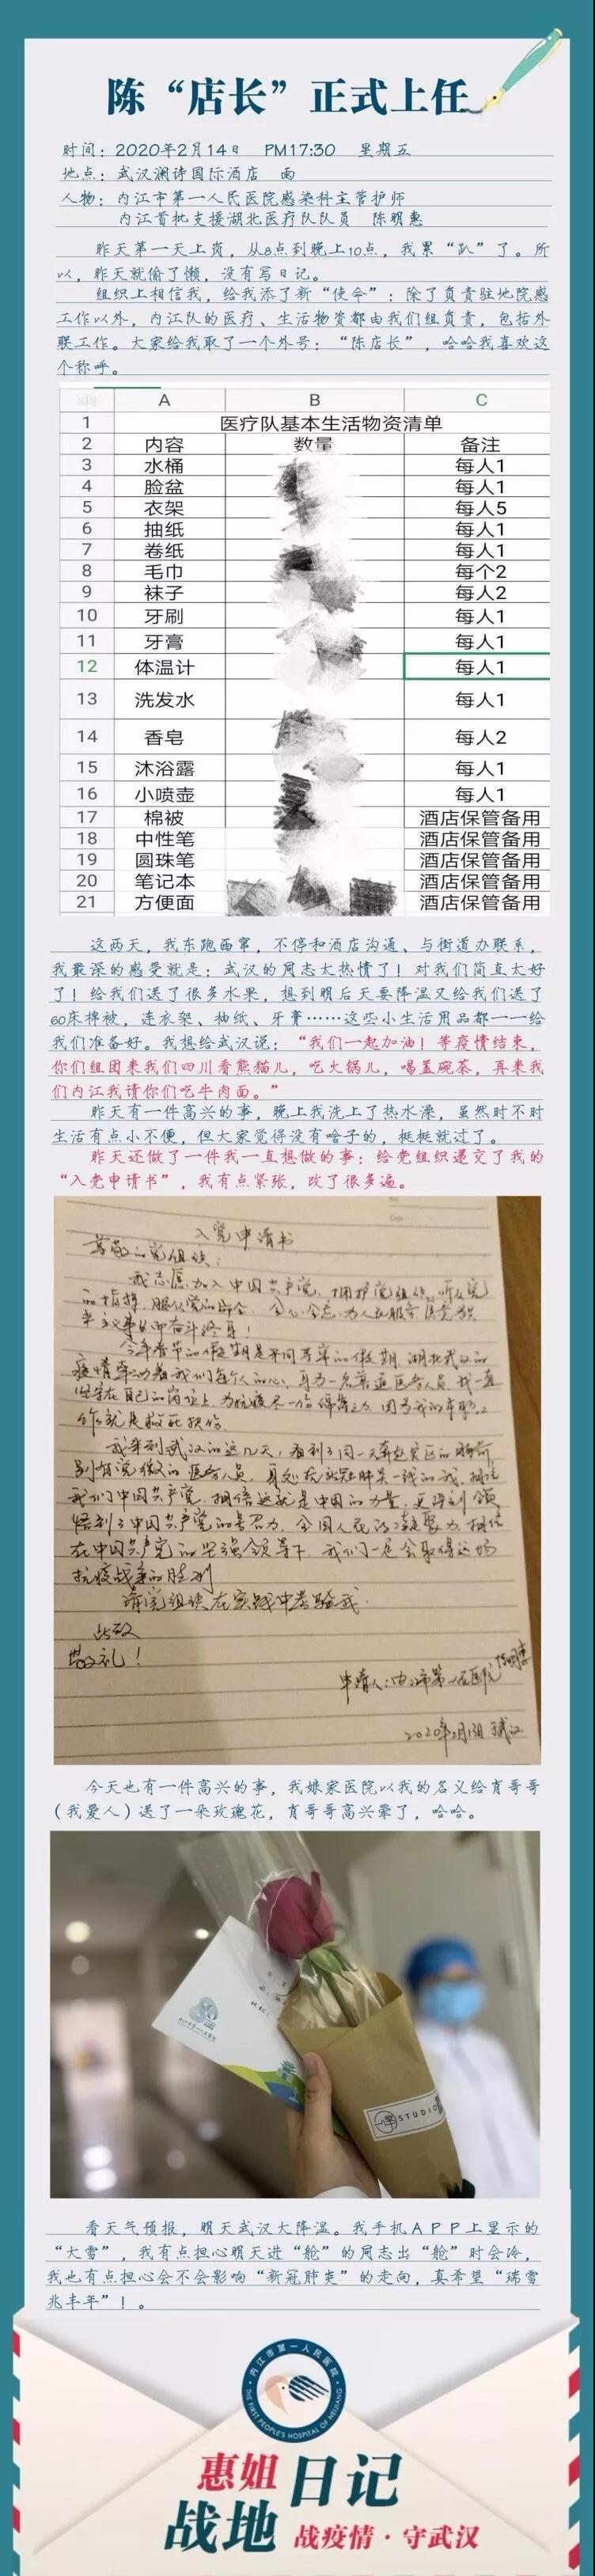 陈“店长”正式上任
时间：2020年2月14日 PM17:30 星期五
地点：武汉澜诗国际酒店 雨
人物：内江市第一人民医院感染科主管护师
内江首批支援湖北医疗队队员 陈明惠
昨天第一天上岗，从8点到晚上10点，我累“趴”了。所
以，昨天就偷了懒，没有写日记。
组织上相信我，给我添了新“使命”：除了负责驻地院感
工作以外，内江队的医疗、生活物资都由我们组负责，包括外
联工作。大家给我取了一个外号：“陈店长”，哈哈我喜欢这
个称呼。
xls A B C
1 医疗队基本生活物资清单
2 内容 数量 备注
3 水桶 每人1
4 脸盆 每人1
5 衣架 每人5
6 抽纸 每人1
7 卷纸 每人1
8 毛巾 每个2
9 袜子 每人2
10 牙刷 每人1
11 牙膏 每人1
12 体温计 每人1
13 洗发水 每人1
14 香皂 每人2
15 沐浴露 每人1
16 小喷壶 每人1
17 棉被 酒店保管备用
18 中性笔 酒店保管备用
19 圆珠笔 酒店保管备用
20 笔记本 酒店保管备用
21 方便面 酒店保管备用
这两天，我东跑西窜，不停和酒店沟通、与街道办联系，
我最深的感受就是：武汉的同志太热情了！对我们简直太好
了！给我们送了很多水果，想到明后天要降温又给我们送了
60床棉被，连衣架、抽纸、牙膏……这些小生活用品都一一给
我们准备好。我想给武汉说：“我们一起加油！等疫情结束，
你们组团来我们四川看熊猫儿，吃火锅儿，喝盖碗茶，再来我
们内江我请你们吃牛肉面。”
昨天有一件高兴的事，晚上我洗上了热水澡，虽然时不时
生活有点小不便，但大家觉得没有啥子的，挺挺就过了。
昨天还做了一件我一直想做的事：给党组织递交了我的
“入党申请书”，我有点紧张，改了很多遍。
入党申请书
尊敬的党组织：
我志愿加入中国共产党，拥护党组织，听从党
的指挥，服从党的命令，全心全意为人民服务
主义事业奋斗终身！
今年春节的假期是不同寻常的假期，湖北武汉的
疫情牵动着我们每个人的心，身为一名普通医务人员，我一直
坚守在自己的岗位上，为抗疫尽一份绵薄之力，因为我的
就是救死扶伤
我来到武汉的这几天，看到了同一天奔赴灾区的
医务人员，身处在新冠肺炎一线的我，相信
我们中国共产党，相信这就是中国的力量，更深刻领
悟到了中国共产党的号召力，全国人民的凝聚力，相信
在中国共产党的坚强领导下，我们一定会取得这场
抗疫战争的胜利
请党组织在实践中考验我。
此致
敬礼！
申请人：内江市第一人民医院 陈明惠
2020年2月13日 武汉
今天也有一件高兴的事，我娘家医院以我的名义给肖哥哥
（我爱人）送了一朵玫瑰花，肖哥哥高兴晕了，哈哈。
STUDIO
看天气预报，明天武汉大降温。我手机APP上显示的
“大雪”，我有点担心明天进“舱”的同志出“舱”时会冷，
我也有点担心会不会影响“新冠肺炎”的走向，真希望“瑞雪
兆丰年”！。
内江市第一人民医院
THE FIRST PEOPLE'S HOSPITAL OF NEIJIANG
惠姐日记
战地 战疫情·守武汉